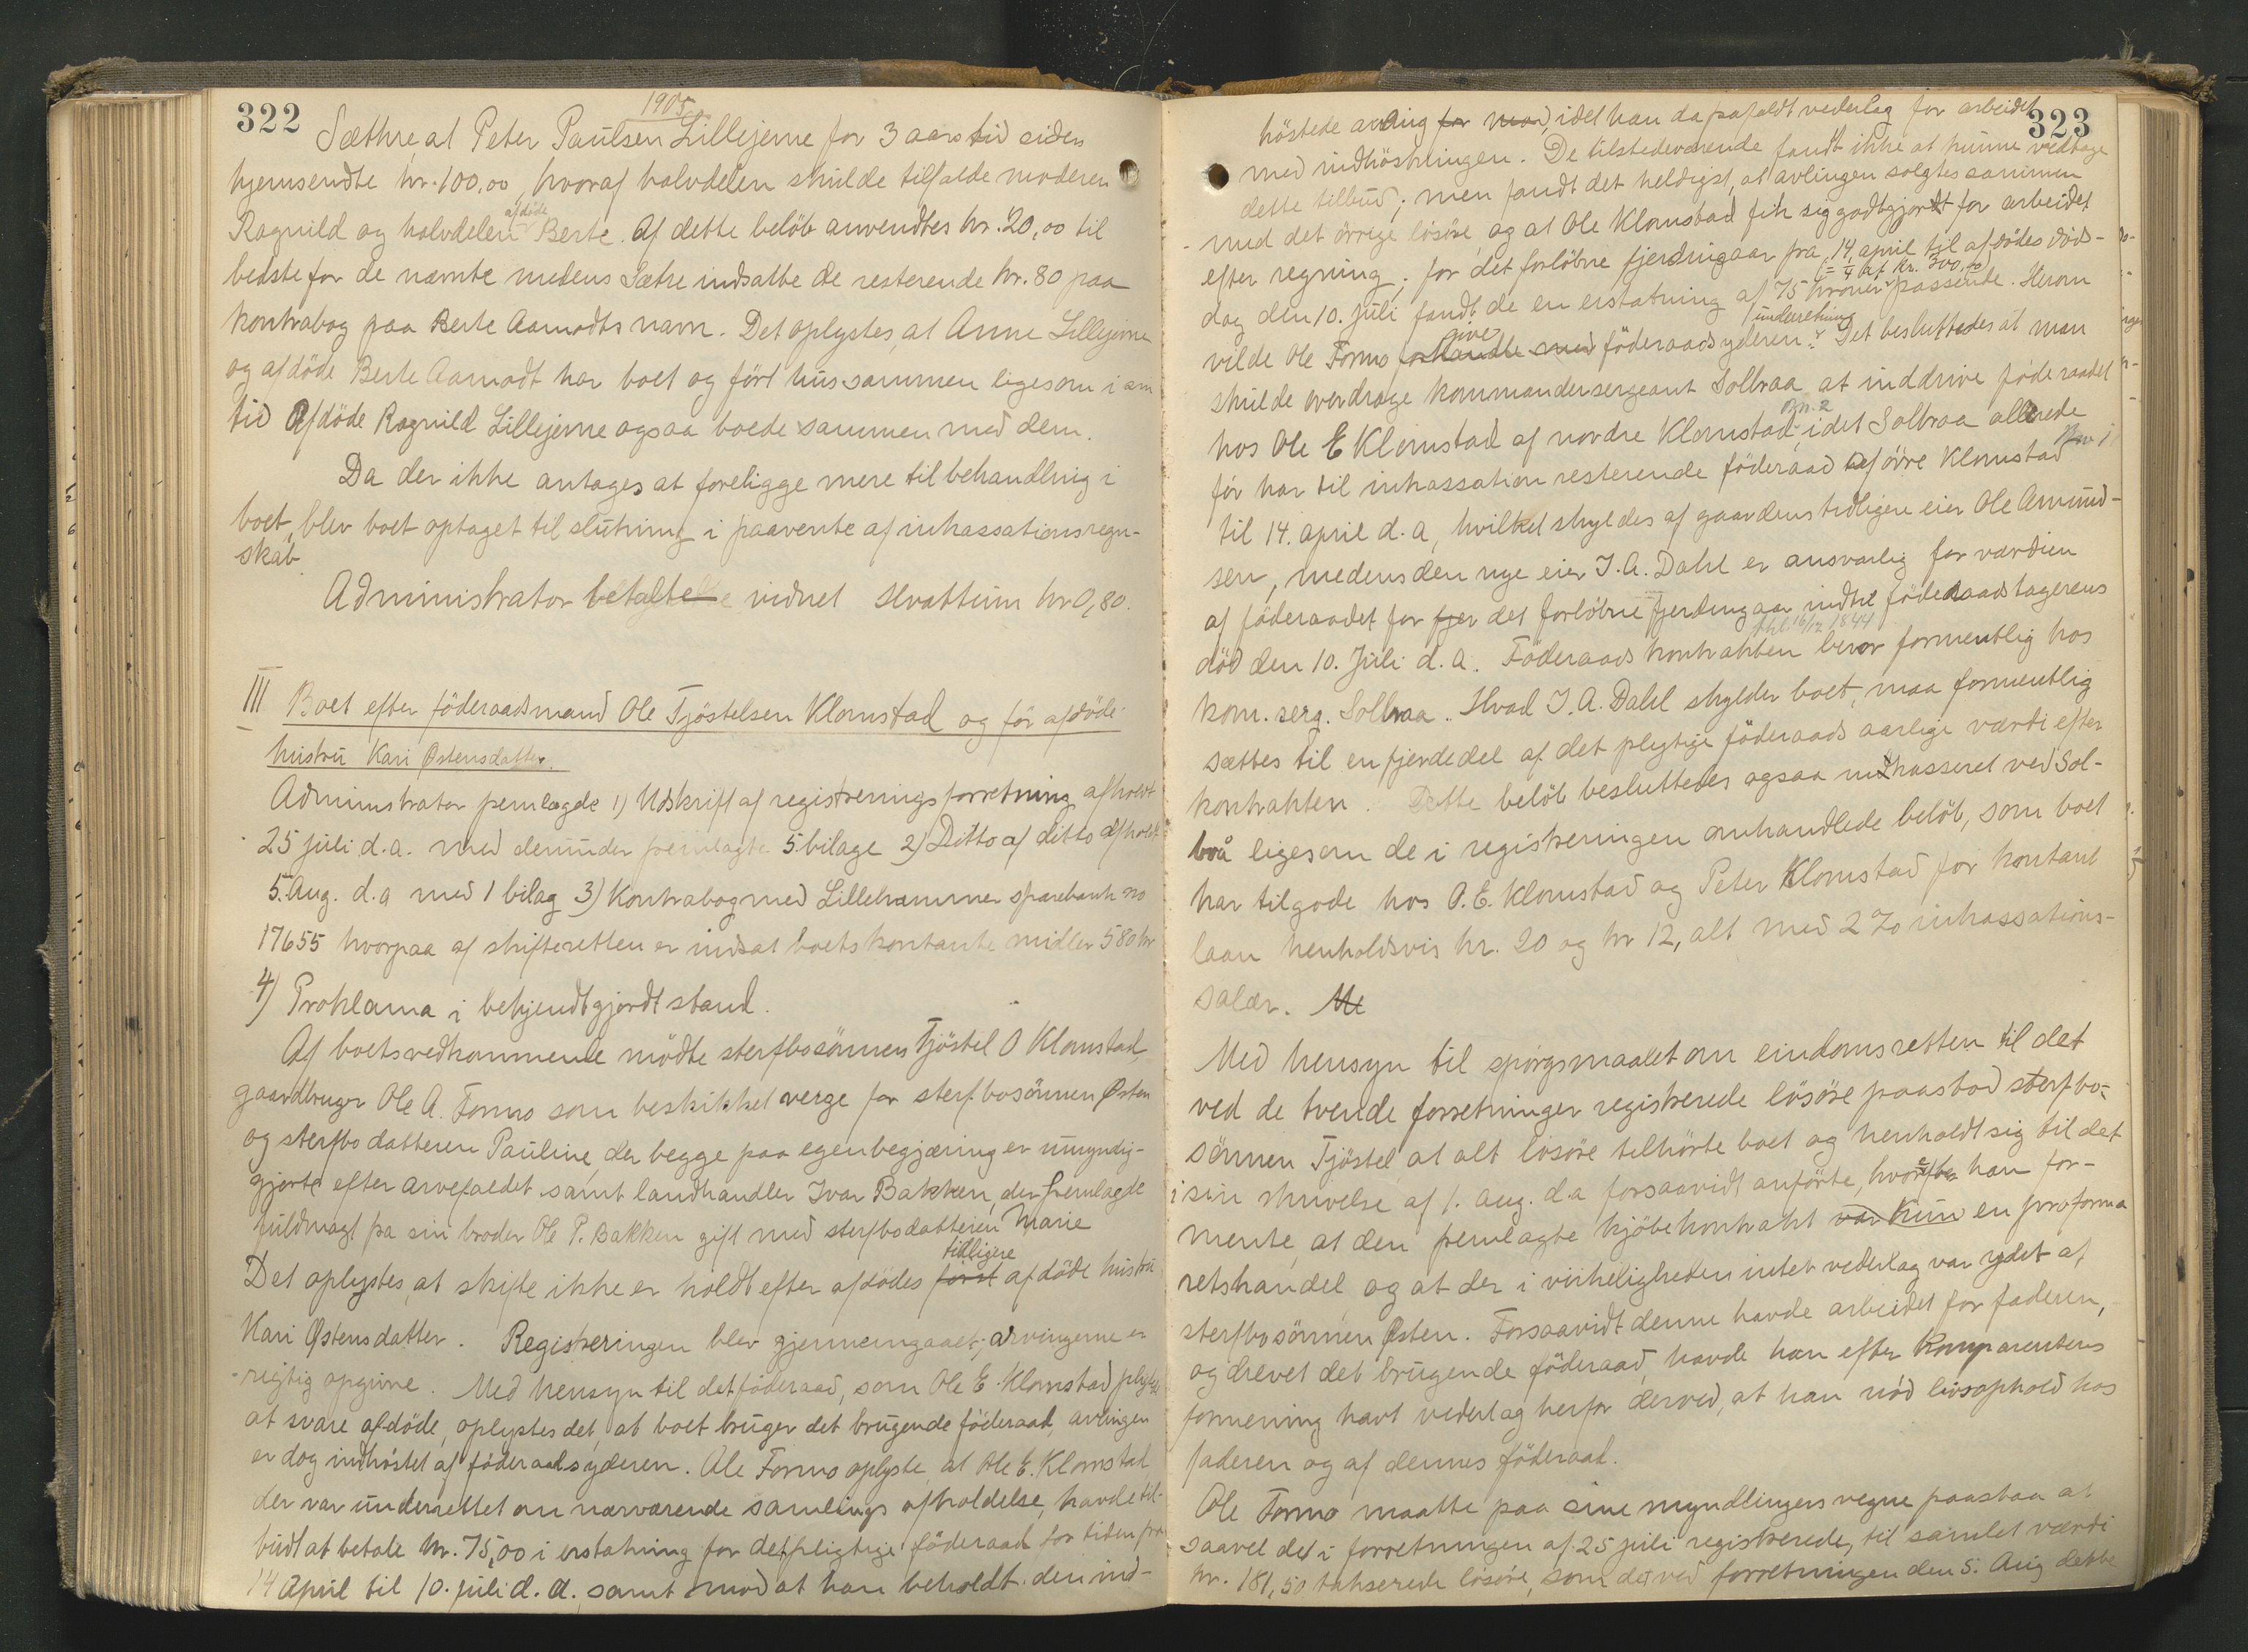 322
1905
Sæthre, at Peter Paulsen Lillejerne for 3 aars tid siden
hjemsendte kr. 100,00, hvoraf halvdelen skulde tilfalde moderen
Ragnild og halvdelen afdöde Berte. Af dette belöb anvendtes kr. 20,00 til
bedste for de nævnte medens Sætre indsatte de resterende kr. 80 paa
kontrabog paa Berte Aamodts navn. Det oplystes, at Anne Lillejerne
og afdöde Berte Aamodt har boet og fört hus sammen ligesom i sin
tid Afdöde Ragnild Lillejerne ogsaa boede sammen med dem.
Da der ikke antages at foreligge mere til behandling i
boet, blev boet optaget til slutning i paavente af inkassationsregn-
skab
Administrator betalte vidnet Hvattum kr 0,80.
III Boet efter föderaadsmand Ole Tjöstelsen Klomstad og för afdöde
hustru Kari Østensdatter.
Administrator fremlagde 1) Udskrift af registreringsforretning afholdt
25 juli d.a. med derunder fremlagte 5 bilage 2) Ditto af ditto afholdt
5. Aug. d.a med 1 bilag 3) Kontrabog med Lillehammer sparebank no
17655 hvorpaa af skifteretten er indsat boets kontante midler 580 kr
4) Proklama i bekjendtgjordt stand.
Af boets vedkommende mödte sterfbosönnen Tjöstel O Klomstad
gaardbruger Ole A. Formo som beskikket verge for sterfbosönnen Østen
og sterfbodatteren Pauline, der begge paa egen begjæring er umyndig-
gjorte efter arvefaldet samt landhandler Ivar Bakken, der fremlagde
fuldmagt fra sin broder Ole P. Bakken gift med sterfbodatteren Marie
Det oplystes, at skifte ikke er holdt efter afdödes först tidligere afdöde hustru
Kari Østensdatter. Registreringen blev gjennemgaaet; arvingerne er
rigtig opgivne. Med hensyn til det föderaad, som Ole E. Klomstad pligtet
at svare afdöde, oplystes det, at boet bruger det brugende föderaad, avlingen
er dog indhöstet af föderaadsyderen. Ole Formo oplyste, at Ole E. Klomstad
der var underrettet om nærværende samlings afholdelse, havde til-
budt at betale kr. 75,00 i erstatning for det pligtige föderaad for tiden fra
14 April til 10. juli d.a. samt mod at han beholdt den ind-
323
höstede avling for mod, idet han da frafaldt vederlag for arbeidet
med indhöstningen. De tilstedeværende fandt ikke at kunne vedtage
dette tilbud; men fandt det heldigst, at avlingen solgtes sammen
med det övrige lösöre og at Ole Klomstad fik sig godtgjordt for arbeidet
efter regning; for det forlöbne fjerdingaar fra 14 april til afdödes döds-
dag den 10. juli fandt de en erstatning af 75 kroner (= 1/4 af kr. 300,00) passende. Herom
vilde Ole Formo forhandle med give föderaadsyderen underretning. Det besluttedes at man
skulde overdrage kommandersergeant Solbraa at inddrive föderaadet
hos Ole E Klomstad af nordre Klomstad, Bn. 2 idet Solbraa allerede
för har til inkassation resterende föderaad af övre Klomstad Bn 1
til 14. april d.a, hvilket skyldes af gaardens tidligere eier Ole Amund-
sen, medens den nye eier J.A. Dahl er ansvarlig for værdien
af föderaadet for fjer det forlöbne fjerdingaar indtil föderaadstagerens
död den 10. Juli d.a. Föderaads kontrakten thl. 16/12 1844 beror formentlig hos
kom. serg. Solbraa. Hvad J.A. Dahl skylder boet, maa formentlig
sættes til en fjerdedel af det pligtige föderaads aarlige værdi efter
kontrakten. Dette belöb besluttedes ogsaa indkasseret ved Sol-
braa ligesom de i registreringen omhandlede belöb, som boet
har tilgode hos O.E. Klomstad og Peter Klomstad for kontant
laan henholdsvis kr. 20 og kr 12, alt med 2 % inkassations-
salær. Me
Med hensyn til spörgsmaalet om eiendomsretten til det
ved de tvende forretninger registrerede lösöre paastod sterfbo-
sönnen Tjöstel at alt lösöre tilhörte boet og henholdt sig til det
i sin skrivelse af 1. aug. d.a forsaavidt anförte, hvorefter han for-
mente, at den fremlagte kjöbekontrakt var kun en proforma
retshandel og at der i virkeligheden intet vederlag var ydet af
sterfbosönnen Østen. Forsaavidt denne havde arbeidet for faderen,
og drevet det brugende föderaad, havde han efter komparentens
formening havt vederlag herfor derved, at han nöd livsophold hos
faderen og af dennes föderaad.
Ole Formo maatte paa sine myndlingers vegne paastaa at
saavel det i forretningen af 25 juli registrerede, til samlet værdi
kr. 181,50 takserede lösöre, som det ved forretningen den 5. Aug dette